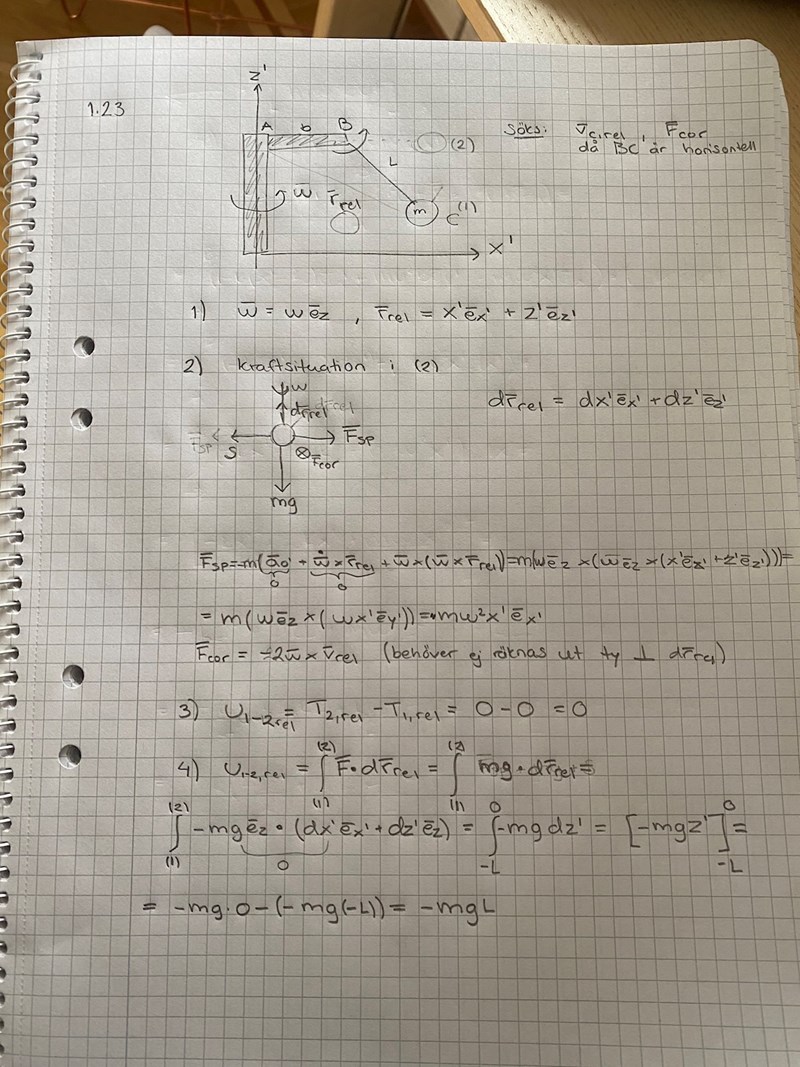 1.23
z'
A b B
(2)
L
ω̄ r̄rel
m C (1)
x'
Söks: v̄c,rel , F̄cor
då BC är horisontell
1) ω̄ = ωēz , r̄rel = x'ēx' + z'ēz'
2) kraftsituation i (2)
dr̄rel = dx'ēx' + dz'ēz'
ω
dr̄rel
S F̄sp
⊗F̄cor
mg
F̄sp=-m(ā0' + ω̄̇ × r̄rel + ω̄×(ω̄×r̄rel))=m(ωēz ×(ω̄ēz ×(x'ēx' +z'ēz')))=
0 0
= m(ωēz ×(ωx'ēy'))=mω²x'ēx'
F̄cor = -2ω̄ × v̄rel (behöver ej räknas ut ty ⊥ dr̄rel)
3) U1-2rel = T2,rel - T1,rel = 0-0 = 0
4) U1-2,rel = ∫(1)(2) F̄•dr̄rel = ∫(1)(2) mg•dr̄rel=
∫(1)(2) -mgēz•(dx'ēx'+dz'ēz) = ∫-L0 -mg dz' = [-mgz']-L0 =
0
= -mg·0-(-mg(-L)) = -mgL